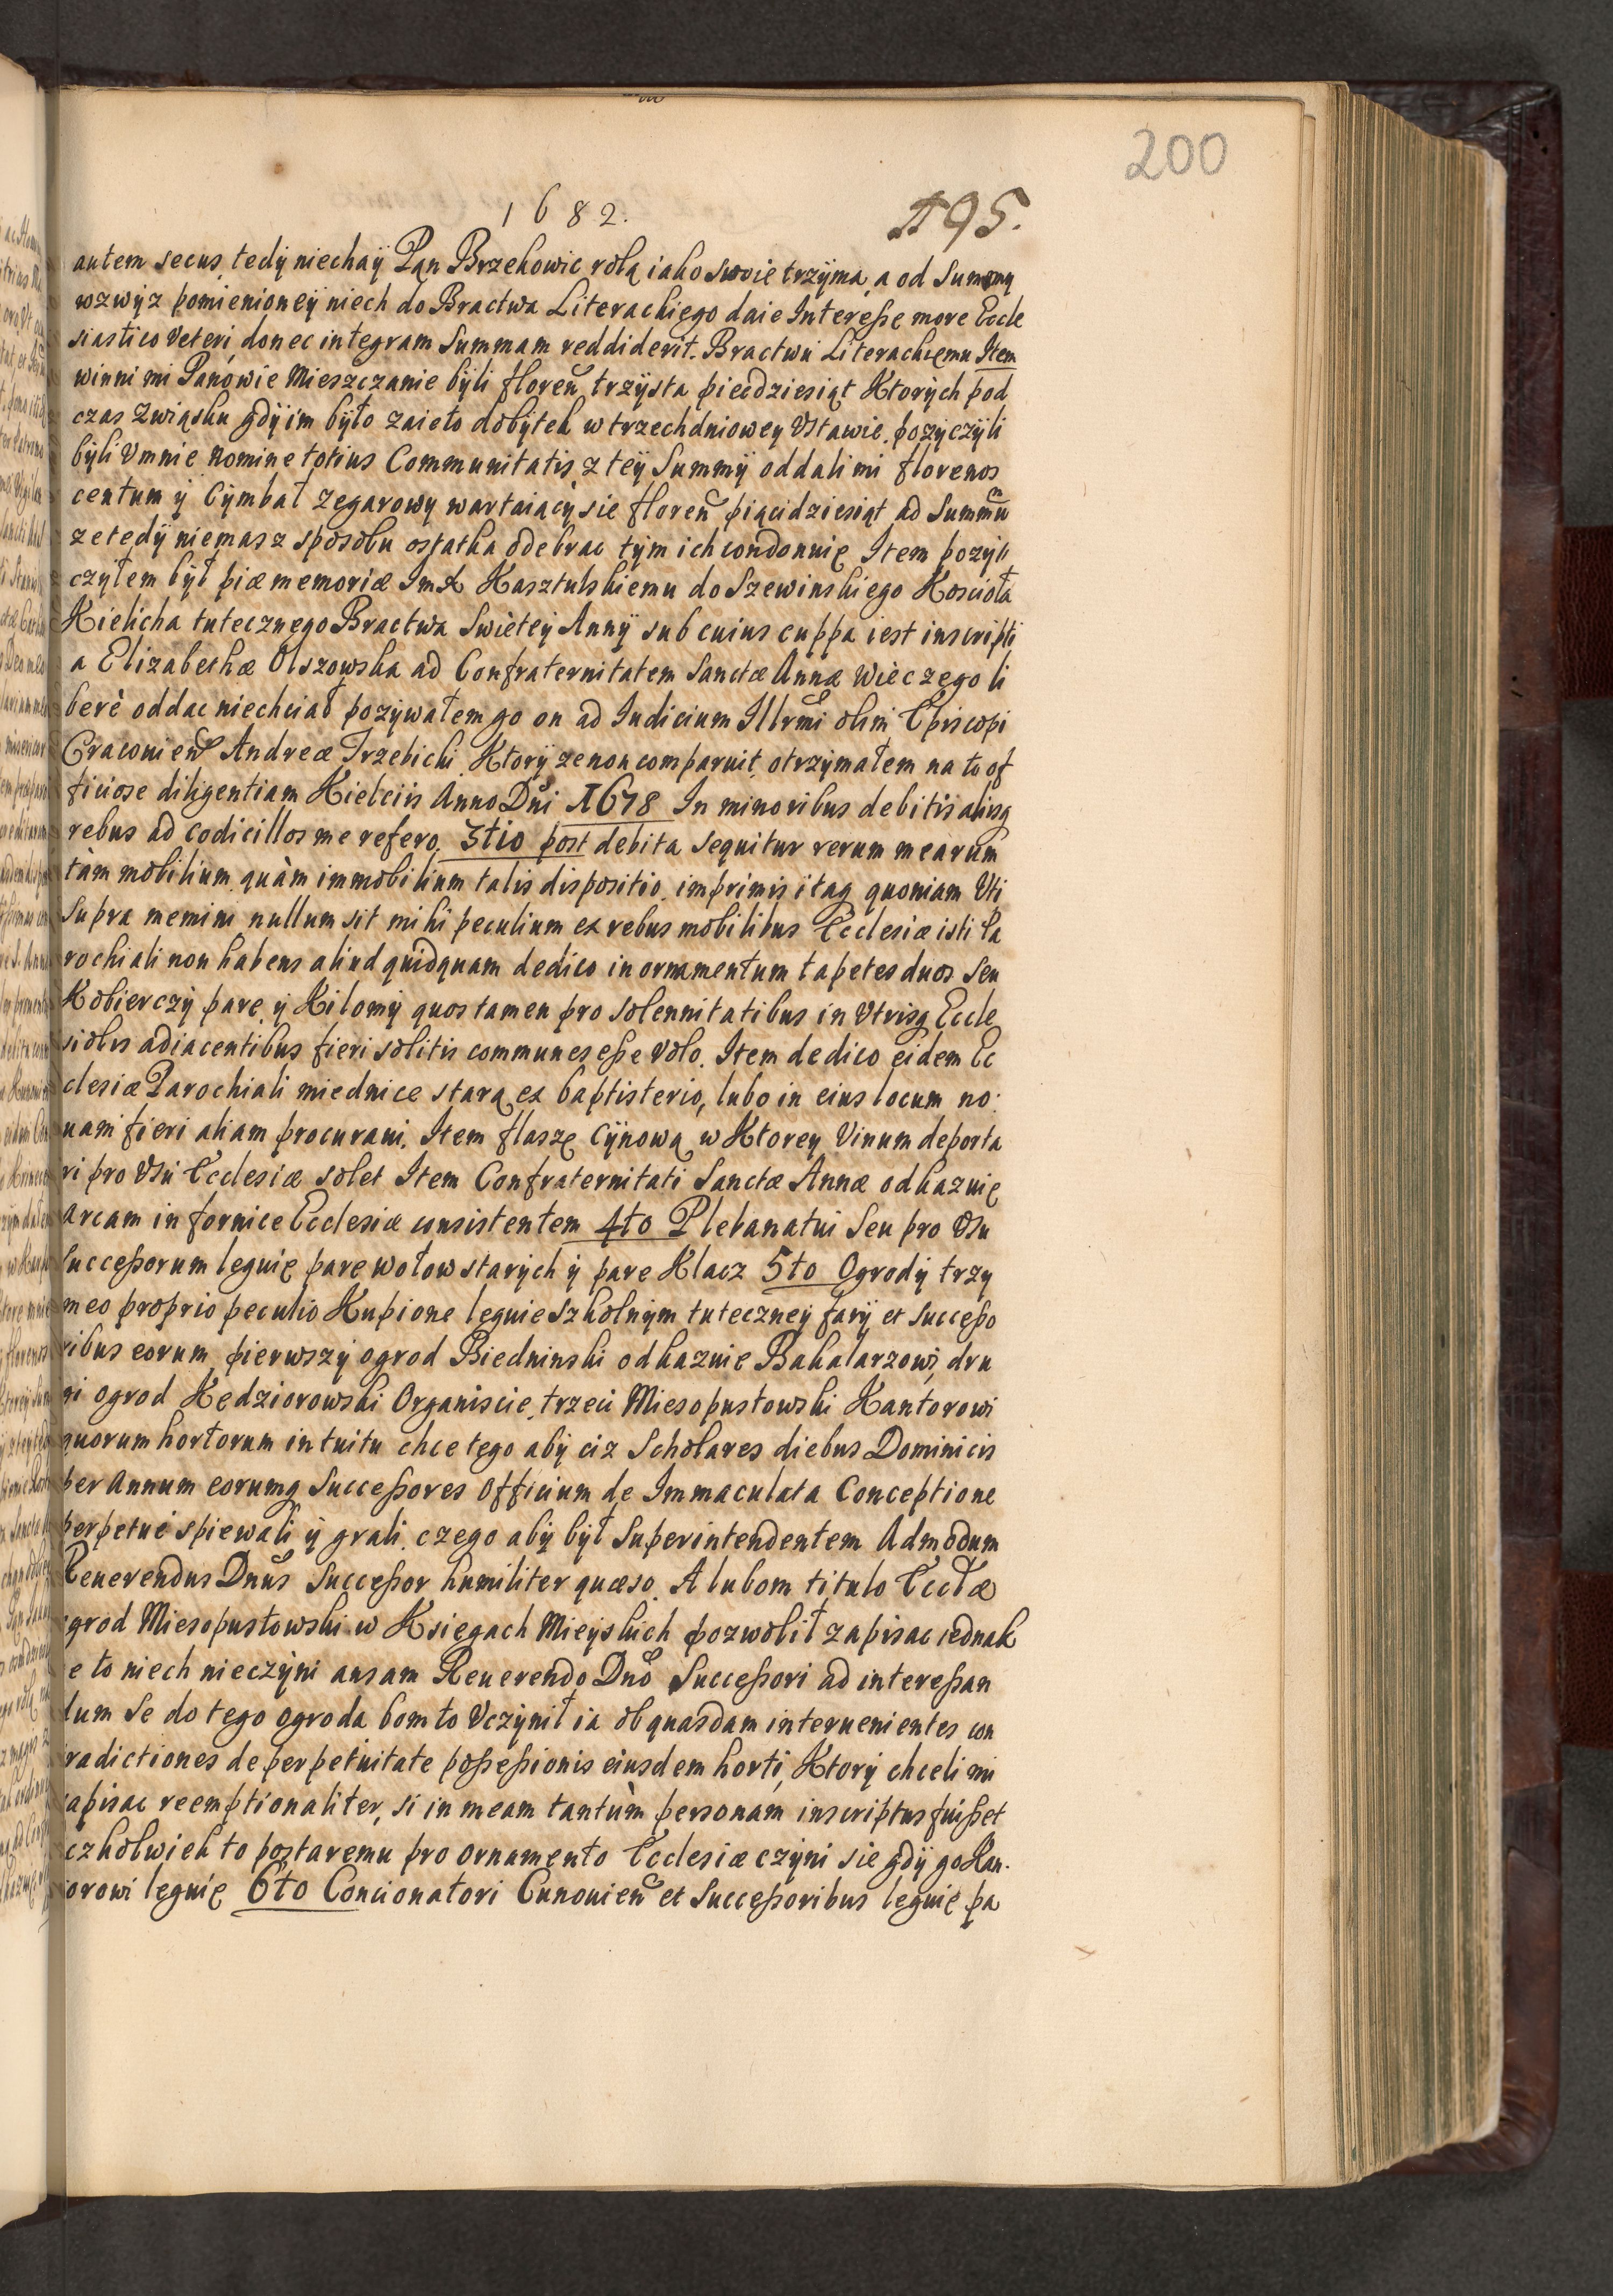 200
1682.
195.
autem secus, tedÿ niechaÿ Pąn Brzekowic rolą iako swoie trzÿma, a od Summÿ
wzwÿż pomienioneÿ niech do Bractwa Literackiego daie Interesse more Eccle
siastico Veteri, donec integram Summam reddiderit. Bractwu Literackiemu Item
winni mi Panowie Mieszczanie bÿli floreñ trzÿsta piecdziesiąt Ktorÿch pod
czas Zwiąsku gdÿ im bÿło zaieto dobÿtek w trzechdniowey Ustawie, pozÿczÿli
bÿli Vmnie Nomine totius Communitatis, z teÿ Summÿ oddali mi florenos
centum ÿ Cÿmbał zegarowy wartaiącÿ sie floreñ piącidziesiąt ad Summũ
ze tedÿ niemasz sposobu ostatka odebrac tÿm ich condonuię Item pozÿ
czÿłem bÿł piæ memoriæ ImX Kasztulskiemu do Szewinskiego Kosciołą
Kielicha tutecznego Bractwa Swieteÿ Annÿ sub cuius cuppa iest inscripti
a Elizabethæ Olszowska ad Confraternitatem Sanctæ Annæ Wiec ze go li
berè oddac niechciał pozÿwałem go on ad Iudicium Illrmi olim Episcopi
Cracouieñ Andreæ Trzebicki Ktorÿ ze non comparuit, otrzÿmałem na to of
ficiose diligentiam Kielciis Anno Dñi 1678 In minoribus debitis alijsq
rebus ad codicillos me refero. 3tio post debita sequitur rerum mearum
tàm mobilium quàm immobilium talis dispositio, imprimis itaq quoniam Uti
Supra memini nullum sit mihi peculium ex rebus mobilibus Ecclesiæ isti Pa
rochiali non habens aliud quidquam dedico in ornamentum tapetes duos Seu
Kobierczÿ parę ÿ Kilomÿ quos tamen pro Solennitatibus in Utrisq Eccle
siolis adiacentibus fieri solitis communes esse Volo. Item dedico eidem Ec
clesiæ Parochiali miednice starą ex baptisterio, lubo in eius locum no:
uam fieri aliam procuraui. Item flaszę Cÿnową w Ktorey Vinum deporta
ri pro Usu Ecclesiæ solet Item Confraternitati Sanctæ Annæ odkazuię
arcam in fornice Ecclesiæ consistentem 4to Plebanatui Seu pro Usu
Successorum leguię pare wołow starÿch ÿ pare Klacz 5to Ogrodÿ trzy
meo proprio peculio Kupione leguie Szkolnÿm tuteczneÿ farÿ et Successo
ribus eorum, pierwszÿ ogrod Biedninski odkazuię Bakalarzowi, dru
gi ogrod Kędziorowski Organiscie, trzeci Miesopustowski Kantorowi
quorum hortorum intuitu chce tego abÿ ciz Scholares diebus Dominicis
per Annum eorumq Successores Officium de Immaculata Conceptione
perpetuè spiewali ÿ grali, czego abÿ bÿł Superintendentem Admodum
Reuerendus Dnũs Successor humiliter quæso. A lubom titulo Ecclæ
grod Miesopustowski w Ksiegach Mieÿskich pozwolił zapisac iednak
e to niech nieczÿni ansam Reuerendo Dnõ Successori ad interessan
dum Se do tego ogroda bom to Uczÿnił ia ob quasdam interuenientes con
radictiones de perpetuitate possessionis eiusdem horti, Ktorÿ chcieli mi
apisac reemptionaliter, si in meam tantùm personam inscriptus fuisset
czkolwiek to postaremu pro ornamento Ecclesiæ czÿni sie gdÿ go Kan-
orowi leguię 6to Concionatori Cunouieñ et Successoribus leguię pa